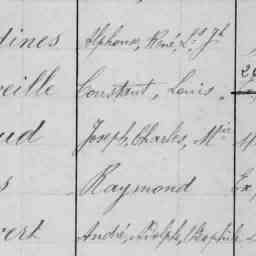 dines Alphonse, René, Ls Jh
eille Constant, Louis,
ud Joseph, Charles, Mie
s Raymond Ex
vert André, Adolphe, Baptiste